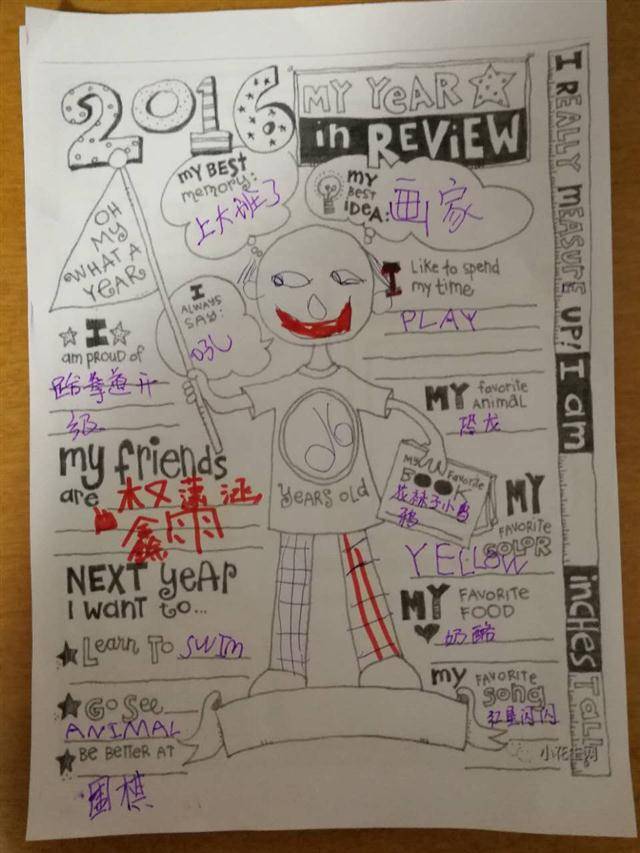 2016
MY YEAR
in REVIEW
I REALLY MEASURE UP! I am inches Tall.
OH
MY
WHAT A
YEAR
my BEST
memory:
上大班了
my
BEST
IDEA:
画家
I
ALWAYS
SAY:
I Like to spend
my time
PLAY
I
am proud of
跆拳道升
级
MY favorite
ANIMAL
恐龙
my friends
are 权潇涵
鑫雨
06
YEARS OLD
MY Favorite
BOOK
花袜子小乌
鸦
MY
FAVORITE
COLOR
YELLOW
NEXT year
I want to...
Learn To SWIM
GO See
ANIMAL
Be Better AT
围棋
MY FAVORITE
FOOD
奶酪
my FAVORITE
Song
红星闪闪
小花生网